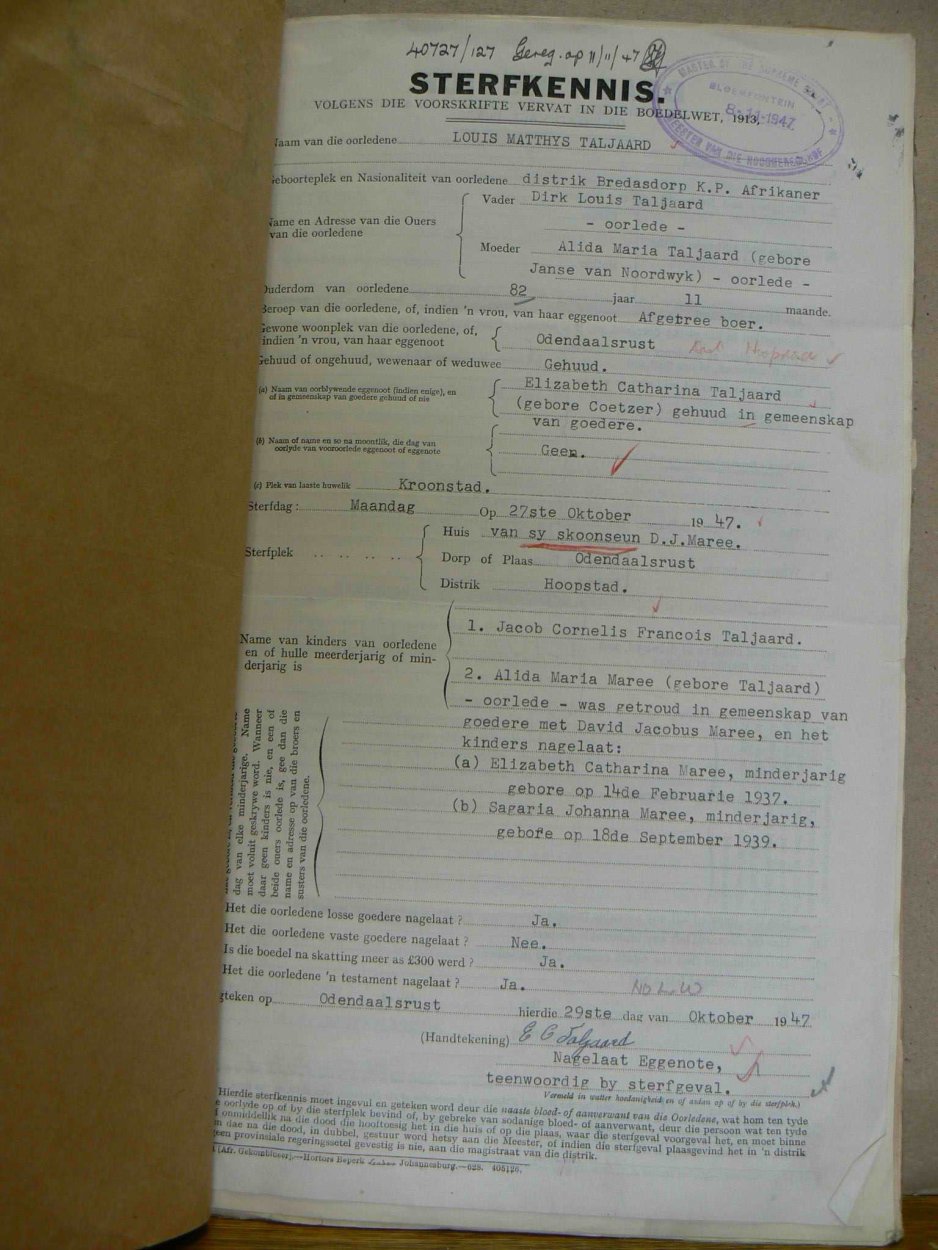 40727/127 Gereg. op 11/11/47
STERFKENNIS.
VOLGENS DIE VOORSKRIFTE VERVAT IN DIE BOEDELWET, 1913,
MASTER OF THE SUPREME COURT
BLOEMFONTEIN
8-11-1947
MEESTER VAN DIE HOOGGEREGSHOF
Naam van die oorledene LOUIS MATTHYS TALJAARD
Geboorteplek en Nasionaliteit van oorledene distrik Bredasdorp K.P. Afrikaner
Name en Adresse van die Ouers van die oorledene
Vader Dirk Louis Taljaard
- oorlede -
Moeder Alida Maria Taljaard (gebore
Janse van Noordwyk) - oorlede -
Ouderdom van oorledene 82 jaar 11 maande.
Beroep van die oorledene, of, indien 'n vrou, van haar eggenoot Afgetree boer.
Gewone woonplek van die oorledene, of,
indien 'n vrou, van haar eggenoot Odendaalsrust
Gehuud of ongehuud, wewenaar of weduwee Gehuud.
(a) Naam van oorblywende eggenoot (indien enige), en
of in gemeenskap van goedere gehuud of nie
Elizabeth Catharina Taljaard
(gebore Coetzer) gehuud in gemeenskap
van goedere.
(b) Naam of name en so na moontlik, die dag van
oorlyde van vooroorlede eggenoot of eggenote
Geen.
(c) Plek van laaste huwelik Kroonstad.
Sterfdag: Maandag Op 27ste Oktober 1947.
Sterfplek
Huis van sy skoonseun D.J.Maree.
Dorp of Plaas Odendaalsrust
Distrik Hoopstad.
Name van kinders van oorledene
en of hulle meerderjarig of min-
derjarig is
1. Jacob Cornelis Francois Taljaard.
2. Alida Maria Maree (gebore Taljaard)
- oorlede - was getroud in gemeenskap van
goedere met David Jacobus Maree, en het
kinders nagelaat:
(a) Elizabeth Catharina Maree, minderjarig
gebore op 14de Februarie 1937.
(b) Sagaria Johanna Maree, minderjarig,
gebore op 18de September 1939.
dag van elke minderjarige. Name
moet voluit geskrywe word. Wanneer
daar geen kinders is nie, en een of
beide ouers oorlede is, gee dan die
name en adresse op van die broers en
susters van die oorledene.
Het die oorledene losse goedere nagelaat? Ja.
Het die oorledene vaste goedere nagelaat? Nee.
Is die boedel na skatting meer as £300 werd? Ja.
Het die oorledene 'n testament nagelaat? Ja.
geteken op Odendaalsrust hierdie 29ste dag van Oktober 1947
(Handtekening) E C Taljaard
Nagelaat Eggenote,
teenwoordig by sterfgeval.
Vermeld in watter hoedanigheid; en of aldan op of by die sterfplek.)
Hierdie sterfkennis moet ingevul en geteken word deur die naaste bloed- of aanverwant van die Oorledene, wat hom ten tyde
oorlyde op of by die sterfplek bevind of, by gebreke van sodanige bloed- of aanverwant, deur die persoon wat ten tyde
onmiddelik na die dood die hooftoesig het in die huis of op die plaas, waar die sterfgeval voorgeval het, en moet binne
dae na die dood, in dubbel, gestuur word hetsy aan die Meester, of indien die sterfgeval plaasgevind het in 'n distrik
geen provinsiale regeringssetel gevestig is nie, aan die magistraat van die distrik.
Hortors Beperk Johannesburg.